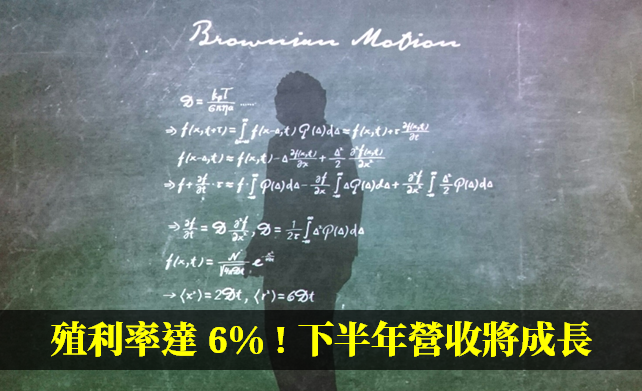 Brownian Motion
D = k_BT / 6πηa ......
⇒ f(x,t+τ) = ∫_{-∞}^{∞} f(x-Δ,t) φ(Δ)dΔ ≈ f(x,t)+τ ∂f(x,t)/∂t
f(x-Δ,t) ≈ f(x,t) - Δ ∂f(x,t)/∂x + Δ²/2 ∂²f(x,t)/∂x²
⇒ f + ∂f/∂t · τ ≈ f · ∫_{-∞}^{∞} φ(Δ)dΔ - ∂f/∂x ∫_{-∞}^{∞} Δφ(Δ)dΔ + ∂²f/∂x² ∫_{-∞}^{∞} Δ²/2 φ(Δ)dΔ
⇒ ∂f/∂t = D ∂²f/∂x² , D = 1/2τ ∫_{-∞}^{∞} Δ²φ(Δ)dΔ
f(x,t) = N/√4πDt e^{-x²/4Dt}
→ ⟨x²⟩ = 2Dt , ⟨r²⟩ = 6Dt
殖利率達 6%！下半年營收將成長